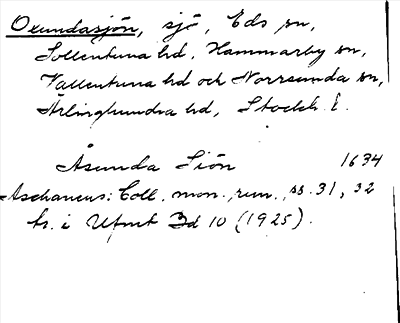 Oxundasjön, sjö, Eds sn,
Sollentuna hd, Hammarby sn,
Vallentuna hd och Norrsunda sn,
Ärlinghundra hd, Stockh. l.
Åsunda Siön 1634
Aschaneus: Coll. mon. run., ss. 31, 32
ts. i Ufmt Bd 10 (1925).